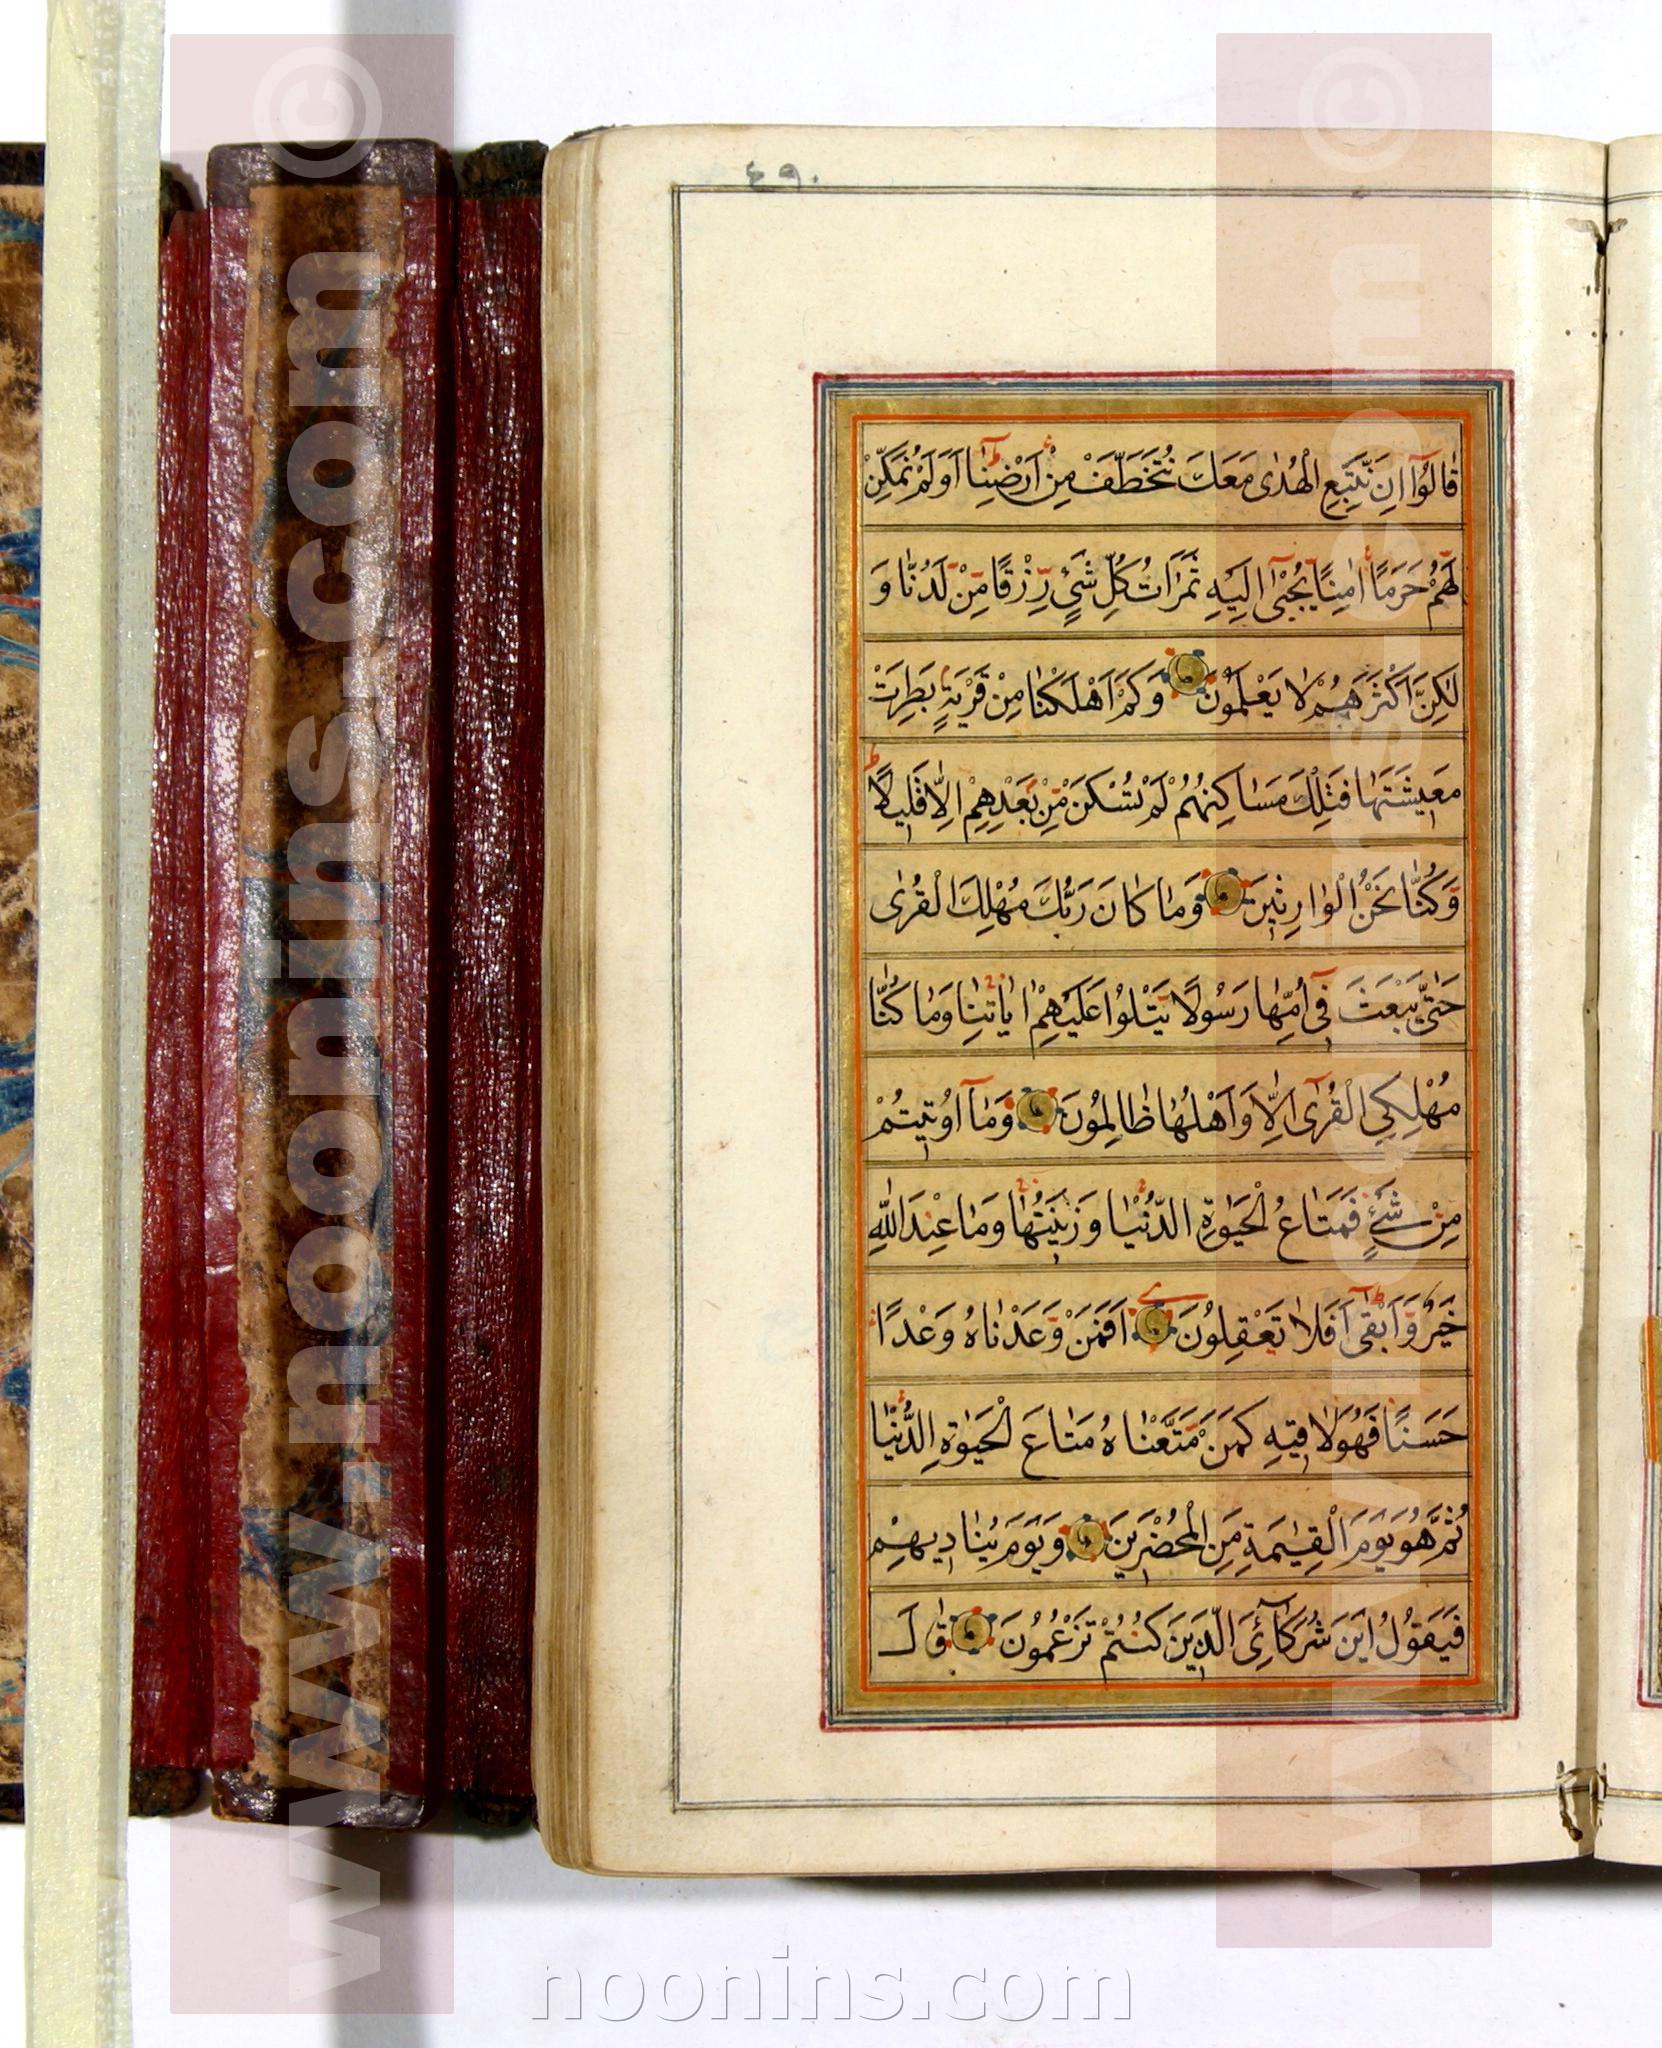 ٤٩٠
قٰالُوٓا اِنْ نَتَّبِعِ الْهُدٰى مَعَكَ نُتَخَطَّفْ مِنْ اَرْضِنٰا اَوَلَمْ نُمَكِّنْ
لَهُمْ حَرَمًا اٰمِنًا يُجْبٰىٓ اِلَيْهِ ثَمَرٰاتُ كُلِّ شَىْءٍ رِزْقًا مِنْ لَدُنّٰا وَ
لٰكِنَّ اَكْثَرَهُمْ لٰا يَعْلَمُونَ وَكَمْ اَهْلَكْنٰا مِنْ قَرْيَةٍ بَطِرَتْ
مَعيشَتَهٰا فَتِلْكَ مَسٰاكِنُهُمْ لَمْ تُسْكَنْ مِنْ بَعْدِهِمْ اِلّٰا قَليلًا
وَكُنّٰا نَحْنُ الْوٰارِثينَ وَمٰا كٰانَ رَبُّكَ مُهْلِكَ الْقُرٰى
حَتّٰى يَبْعَثَ فىٓ اُمِّهٰا رَسُولًا يَتْلُوا عَلَيْهِمْ اٰيٰاتِنٰا وَمٰا كُنّٰا
مُهْلِكِي الْقُرٰىٓ اِلّٰا وَاَهْلُهٰا ظٰالِمُونَ وَمٰآ اُوتيتُمْ
مِنْ شَىْءٍ فَمَتٰاعُ الْحَيٰوةِ الدُّنْيٰا وَزينَتُهٰا وَمٰا عِنْدَ اللّٰهِ
خَيْرٌ وَاَبْقٰىٓ اَفَلٰا تَعْقِلُونَ اَفَمَنْ وَعَدْنٰاهُ وَعْدًا
حَسَنًا فَهُوَ لٰاقيهِ كَمَنْ مَتَّعْنٰاهُ مَتٰاعَ الْحَيٰوةِ الدُّنْيٰا
ثُمَّ هُوَ يَوْمَ الْقِيٰمَةِ مِنَ الْمُحْضَرينَ وَيَوْمَ يُنٰاديهِمْ
فَيَقُولُ اَيْنَ شُرَكٰآئِىَ الَّذينَ كُنْتُمْ تَزْعُمُونَ قٰالَ
www.noonins.com ©
www.noonins.com ©
noonins.com